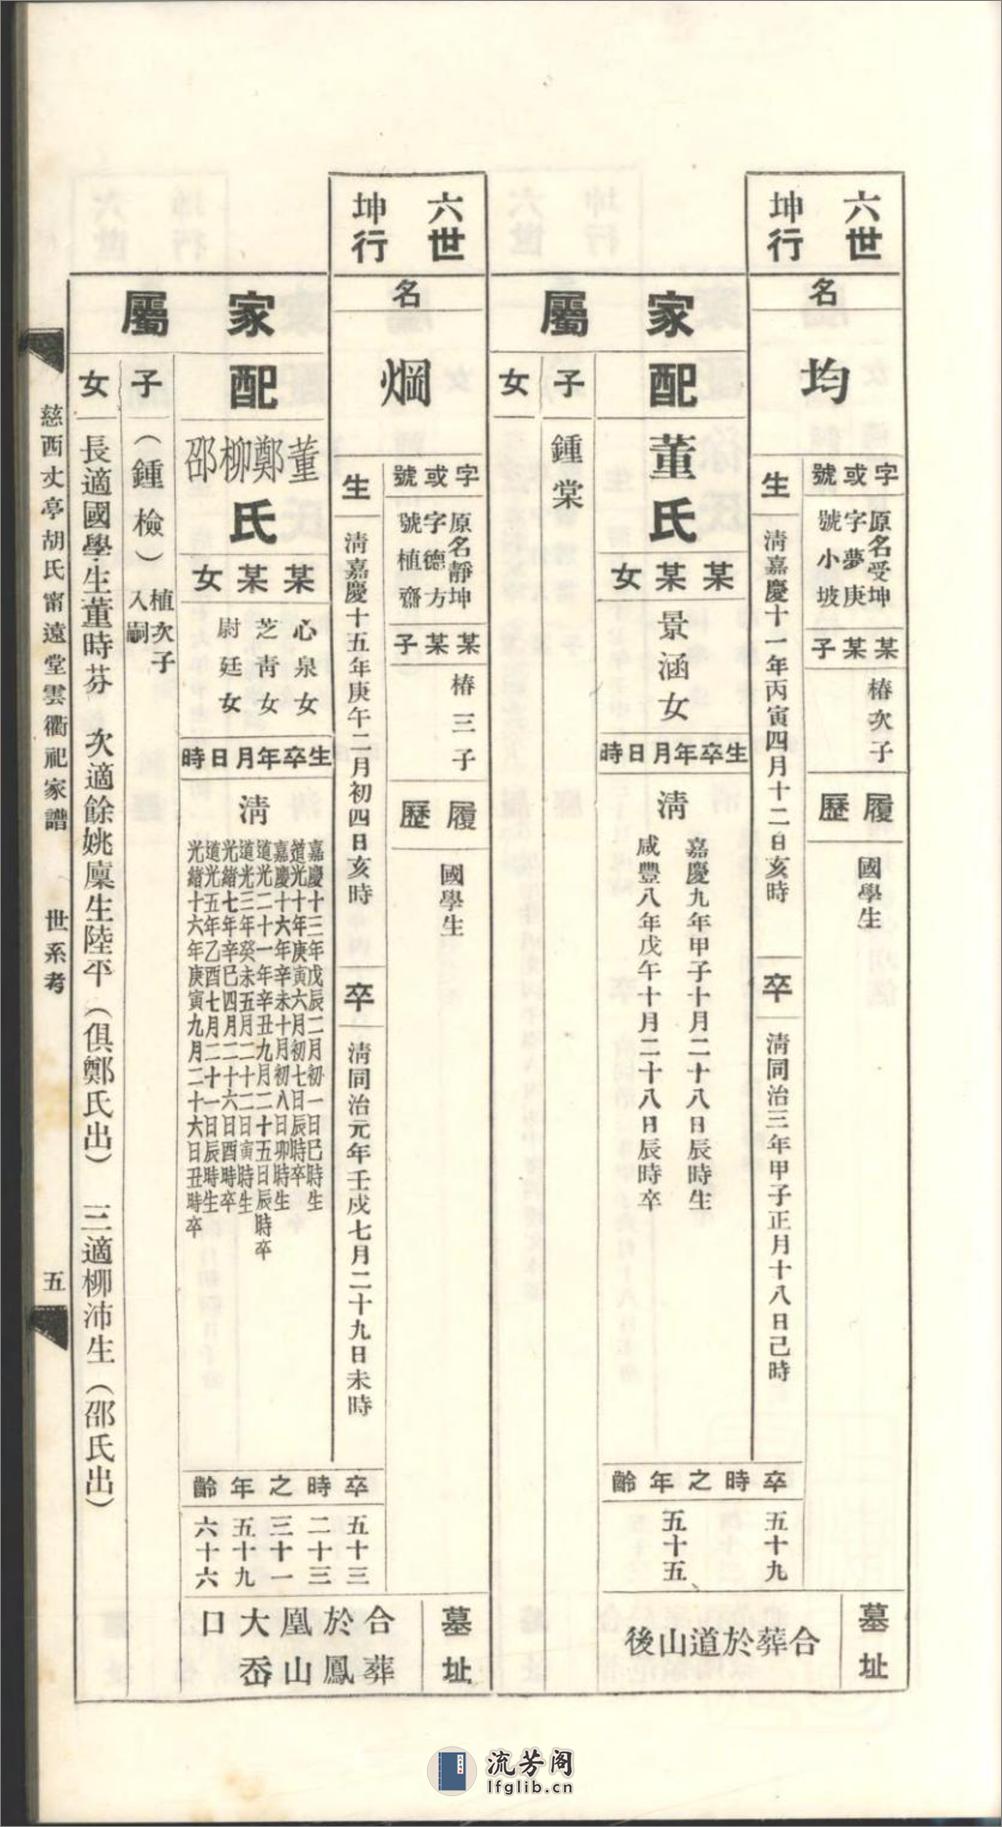 六世
坤行
名
均
字或號
原名受坤
字夢庚
號小坡
某某子
椿次子
履歷
國學生
生
清嘉慶十一年丙寅四月十二日亥時
卒
清同治三年甲子正月十八日己時
家屬
配
董氏
某某女
景涵女
生卒年月日時
清
嘉慶九年甲子十月二十八日辰時生
咸豐八年戊午十月二十八日辰時卒
子
鍾棠
女
卒時之年齡
五十九
五十五
墓址
合葬於道山後
六世
坤行
名
焵
字或號
原名靜坤
字德方
號植齋
某某子
椿三子
履歷
國學生
生
清嘉慶十五年庚午二月初四日亥時
卒
清同治元年壬戌七月二十九日未時
家屬
配
董鄭柳邵
氏
某某女
心泉女
芝青女
尉廷女
生卒年月日時
清
嘉慶十三年戊辰二月初一日巳時生
道光十年庚寅六月初七日辰時卒
嘉慶十六年辛未十月初八日卯時生
道光二十一年辛丑九月二十五日辰時卒
道光三年癸未五月二十二日寅時生
光緒七年辛巳四月二十六日酉時卒
道光五年乙酉七月二十一日辰時生
光緒十六年庚寅九月二十六日丑時卒
子
(鍾檢)
植次子
入嗣
女
長適國學生董時芬 次適餘姚廩生陸平(俱鄭氏出) 三適柳沛生(邵氏出)
卒時之年齡
五十三
二十三
三十一
五十九
六十六
墓址
合葬於鳳凰山大岙口
慈西丈亭胡氏甯遠堂雲衢祀家譜 世系考 五
流芳阁
lfglib.cn